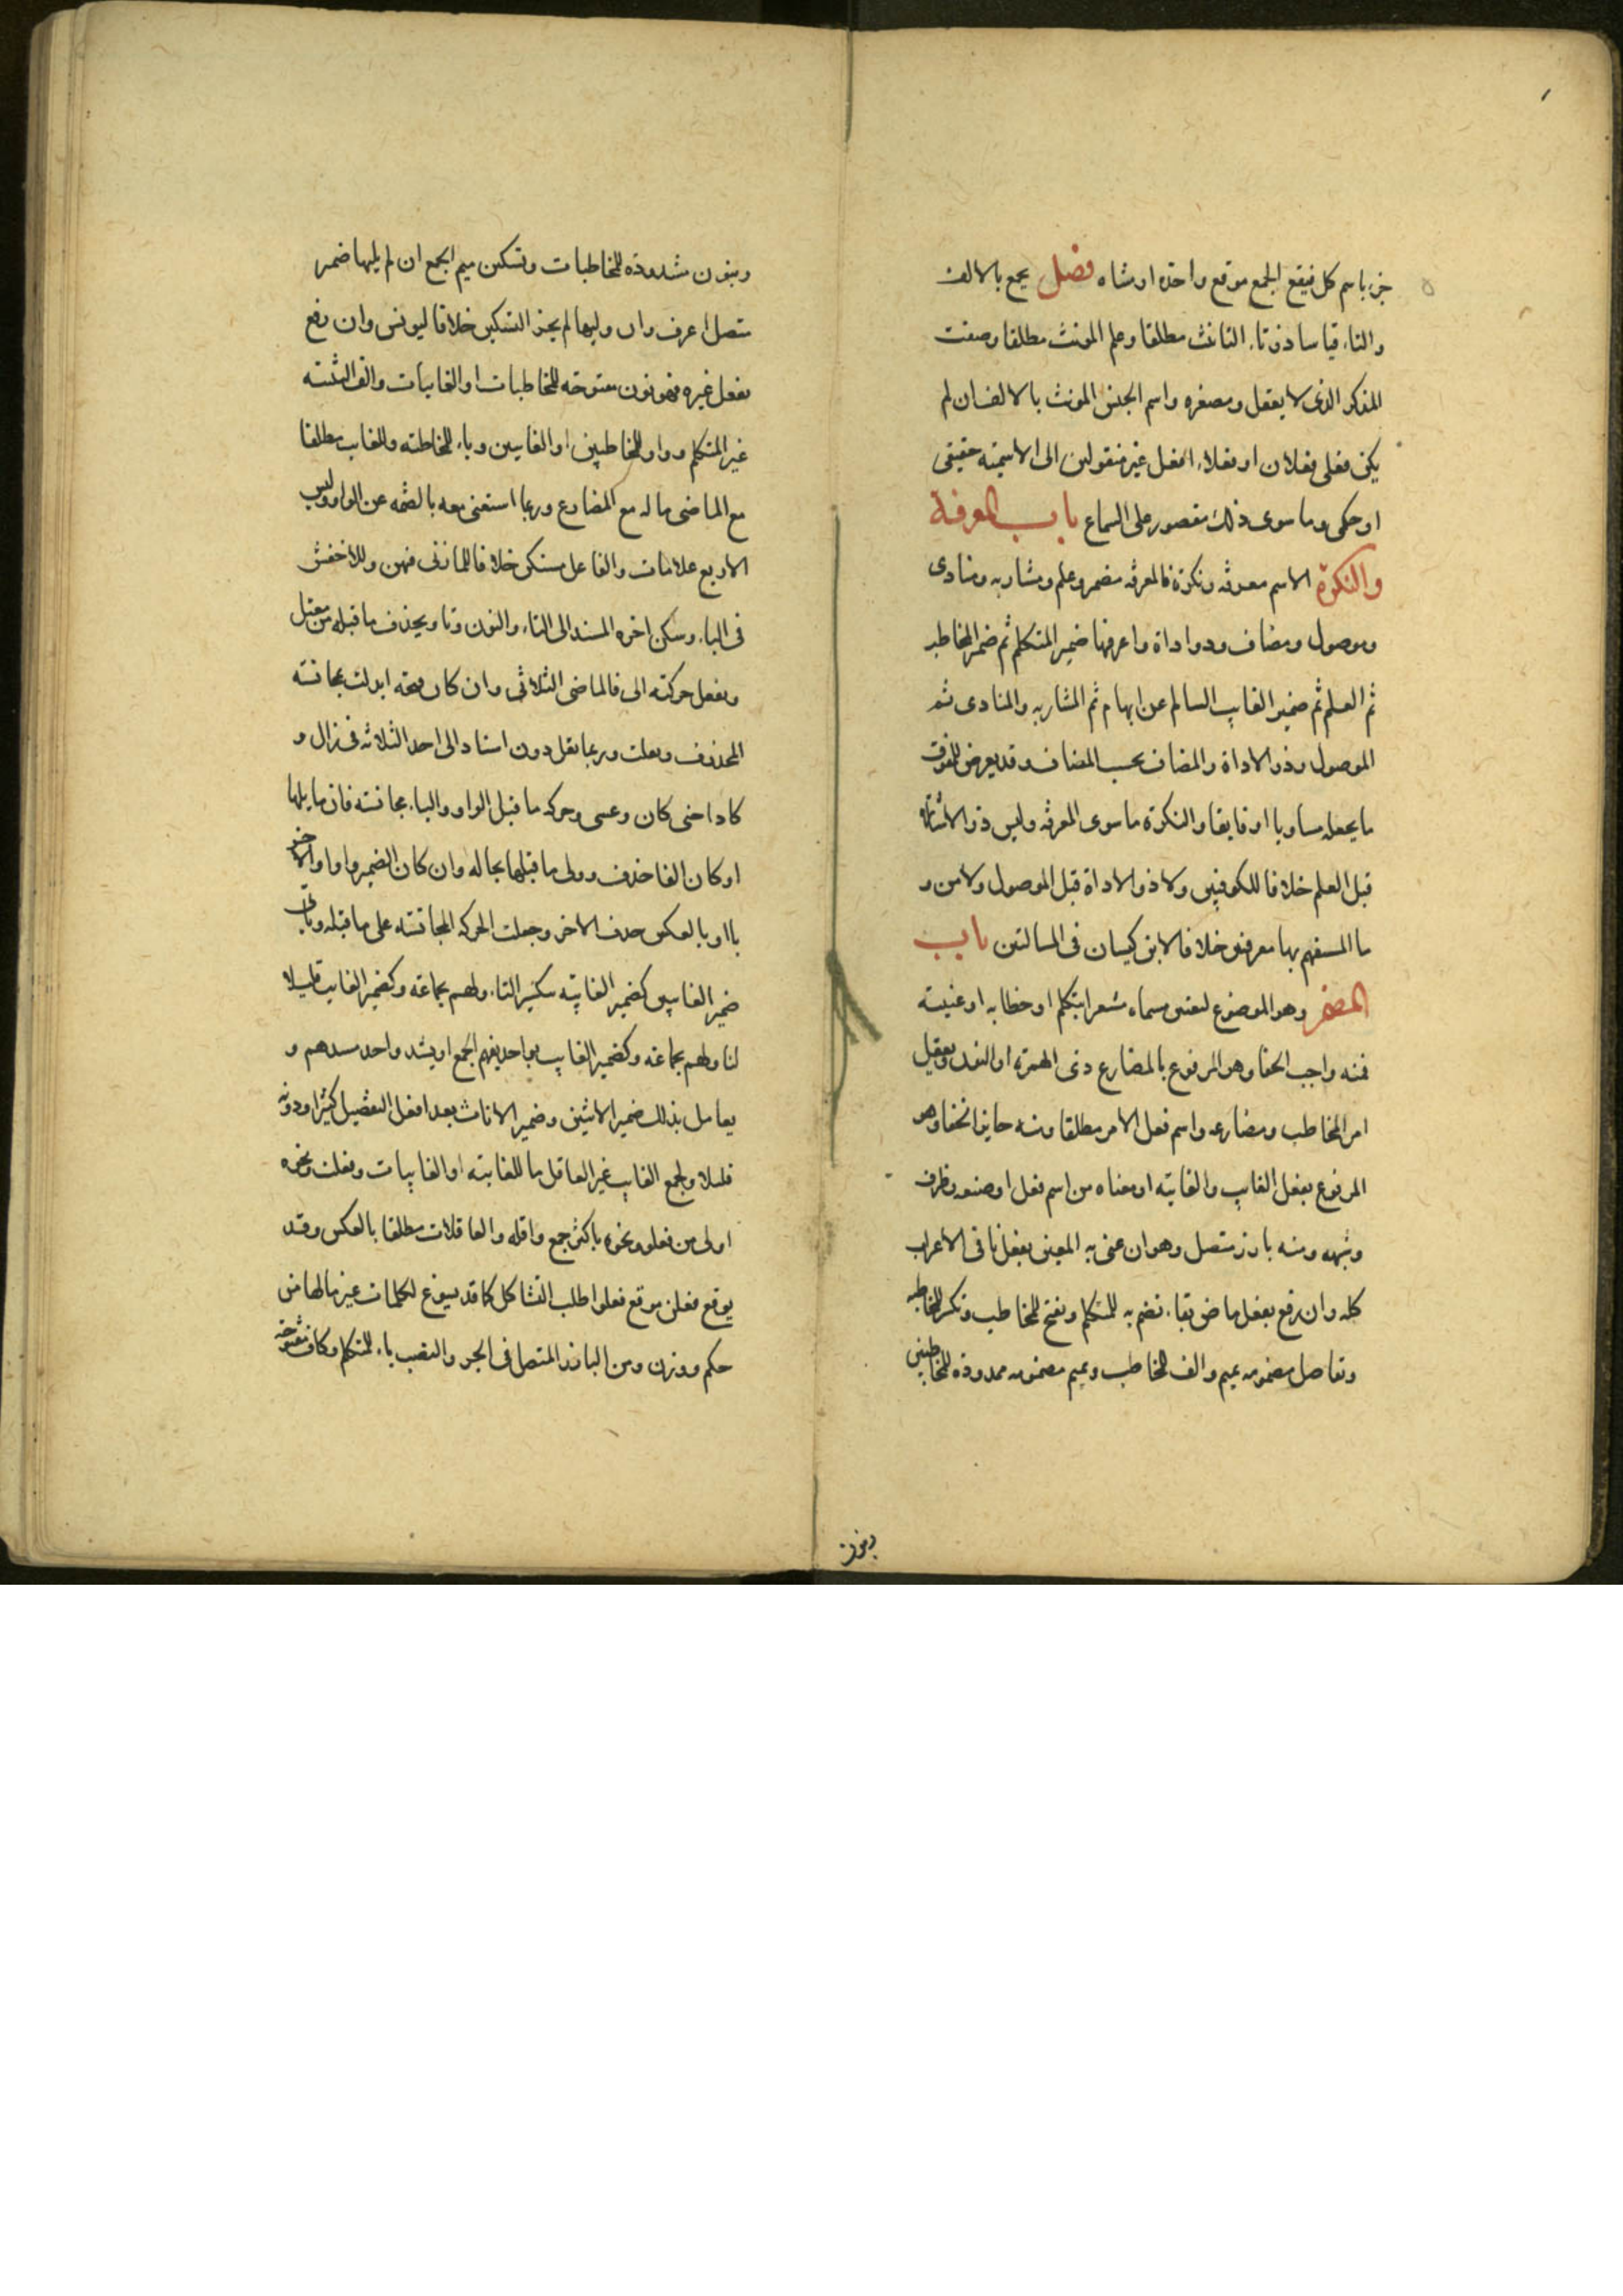 جزء باسم كل فيقع الجمع موقع واحده او مثناه فصل يجمع بالالف
والتاء قياسا ذو تاء التانيث مطلقا وعلم المونث مطلقا وصفت
المذكر الذى لا يعقل ومصغره واسم الجنس المونث بالالف ان لم
يكن فعلى فعلان او فعلاء افعل غير منقولين الى الاسميته حقيقى
او حكى وما سوى ذلك مقصور على السماع باب المعرفة
والنكرة الاسم معرفه ونكرة فالمعرفه مضمر وعلم ومشار به ومنادى
وموصول ومضاف وذو اداة واعرفها ضمير المتكلم ثم ضمير المخاطب
ثم العلم ثم ضمير الغايب السالم عن ابهام ثم المشار به والمنادى ثم
الموصول وذو الاداة والمضاف بحسب المضاف وقد يعرض للمفوق
ما يجعله مساويا او فايقا والنكرة ما سوى المعرفه وليس ذو الاشارة
قبل العلم خلافا للكوفيين ولا ذو الاداة قبل الموصول ولا من و
ما المستفهم بها معرفتين خلافا لابن كيسان فى المسالتين باب
المضمر وهو الموضوع لتعيين مسماه مشعرا بتكلم او خطابه او غيبته
فمنه واجب الخفا وهو المرفوع بالمضارع ذى الهمزه او النون وبفعل
امر المخاطب ومضارعه واسم فعل الامر مطلقا ومنه جايز الخفا وهو
المرفوع بفعل الغايب والغايبه او معناه من اسم فعل او صفه وظرف
وشبهه ومنه بارز متصل وهو ان عنى به المعنى بفعل نا فى الاعراب
كله وان رفع بفعل ماض بتاء تضم به للمتكلم وتفتح للمخاطب وتكسر للمخاطبه
وتقاصل مضمومه بميم والف للمخاطب وبميم مضمومه ممدودة للمخاطبين
وبنون
وبنون مشددة للمخاطبات وتسكين ميم الجمع ان لم يلها ضمير
متصل اعرف وان وليها لم يجز التسكين خلافا ليونس وان رفع
بفعل غيره فهو نون مفتوحه للمخاطبات او الغايبات والف التثنيه
غير المتكلم وواو للمخاطبين او الغايبين وياء للمخاطبه وللغايب مطلقا
مع الماضى ما له مع المضارع وربما استغنى معه بالضمه عن الواو وليس
الاربع علامات والفاعل مستكن خلافا للمازنى فيهن وللاخفش
فى الياء وسكن اخره المسند الى التاء والنون ونا ويحذف ما قبله من معتل
وينقل حركته الى فا الماضى الثلاثى وان كان فتحه ابدلت بمجانسه
المحذوف ونقلت وربما نقل دون اسناد الى احد الثلاثه فى زال و
كاد اختى كان وعسى وحركه ما قبل الواو والياء مجانسه فان ما يلها
او كان الفا حذف وولى ما قبلها بحاله وان كان الضمير واوا والاخر
يا او بالعكس حذف الاخر وجعلت الحركه المجانسه على ما قبله وياتى
ضمير الغايبين كضمير الغايبه بكثير التاء ولهم بجماعه وكضمير الغايب قليلا
لتاولهم بجماعه وكضمير الغايب بواحد يفهم الجمع او يسد واحد مسدهم و
يعامل بذلك ضمير الاثنين وضمير الاناث بعد افعل التفضيل كثيرا ودونه
قليلا ولجمع الغايب غير العاقل ما للغايبه او الغايبات وفعلت ونحوه
اولى من فعلو ونحوه باكثر جمع واقله والعاقلات مطلقا بالعكس وقد
يوقع فعلن موقع فعلوا طلب التشاكل كما قد يسوغ لكلمات غير ما لها من
حكم ووزن ومن البارز المتصل فى الجر والنصب ياء للمتكلم وكاف مفتوحه